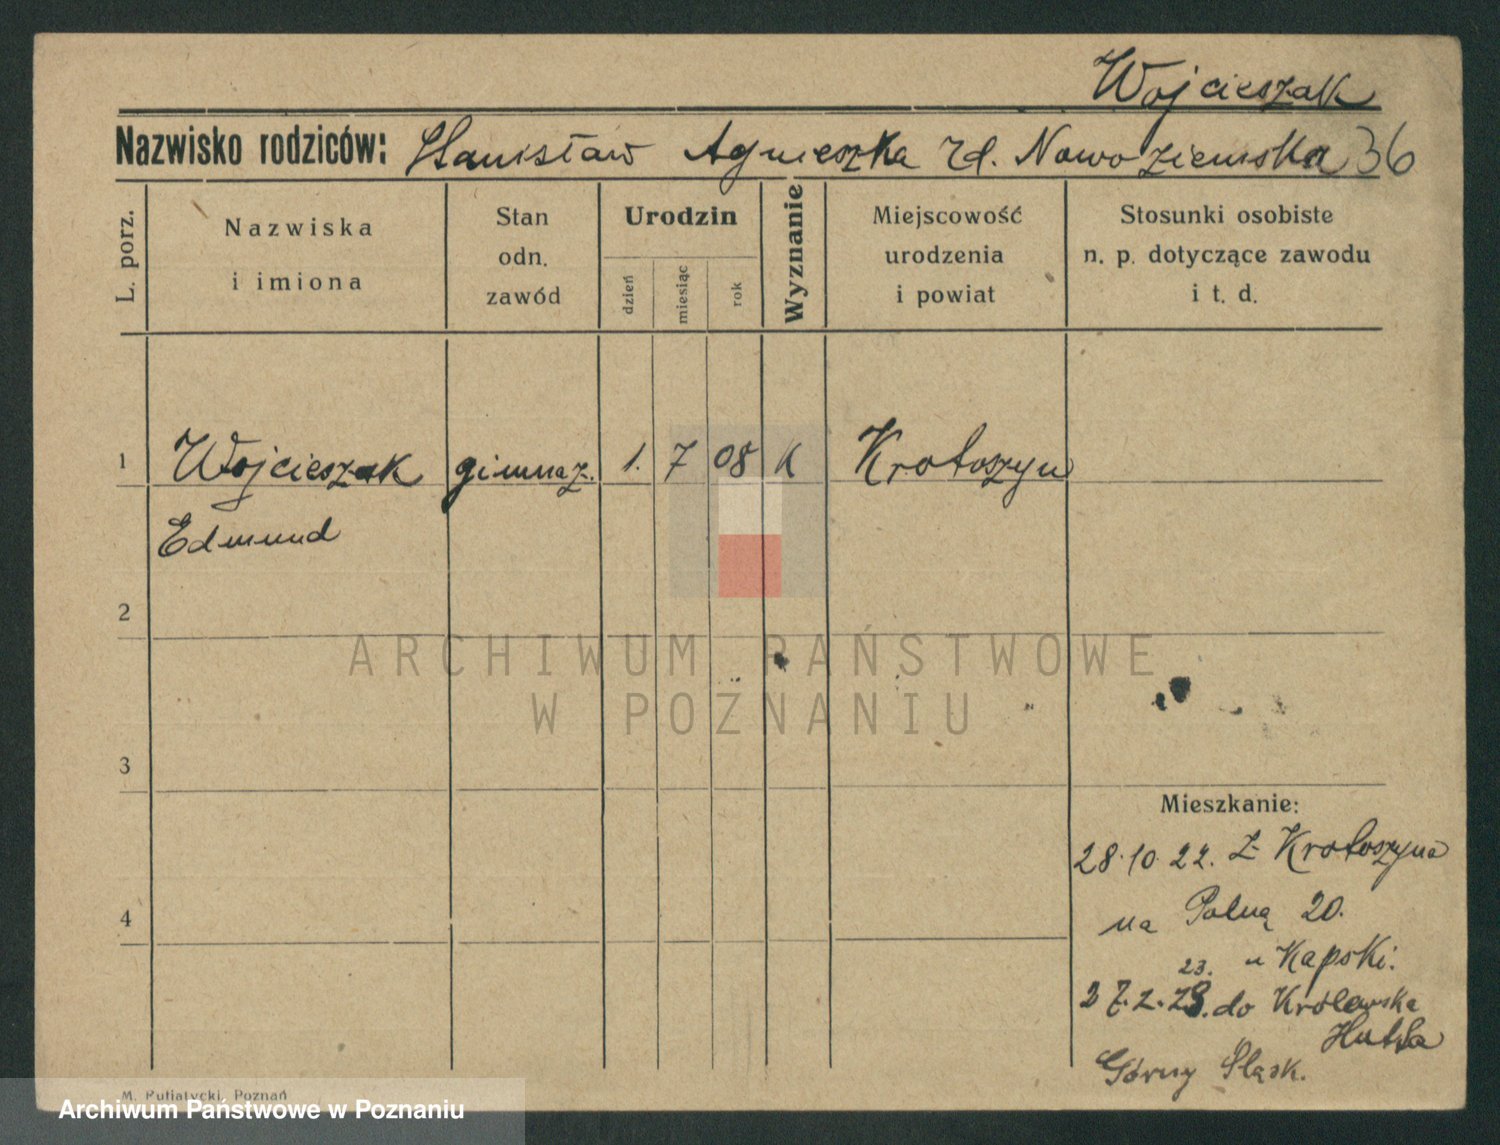 Wojcieszak
Nazwisko rodziców: Stanisław Agnieszka zd. Nowoziemska 36
L. porz.
Nazwiska
i imiona
Stan
odn.
zawód
Urodzin
dzień
miesiąc
rok
Wyznanie
Miejscowość
urodzenia
i powiat
Stosunki osobiste
n. p. dotyczące zawodu
i t. d.
1 Wojcieszak gimnaz. 1. 7 08 K Krotoszyn
Edmund
2
ARCHIWUM PAŃSTWOWE
W POZNANIU
3
Mieszkanie:
28.10.22. z Krotoszyna
4
na Polną 20.
u Kapski.
23.
27.2.23. do Królewska
Hutta
Górny Śląsk.
M. Putiatycki, Poznań
Archiwum Państwowe w Poznaniu